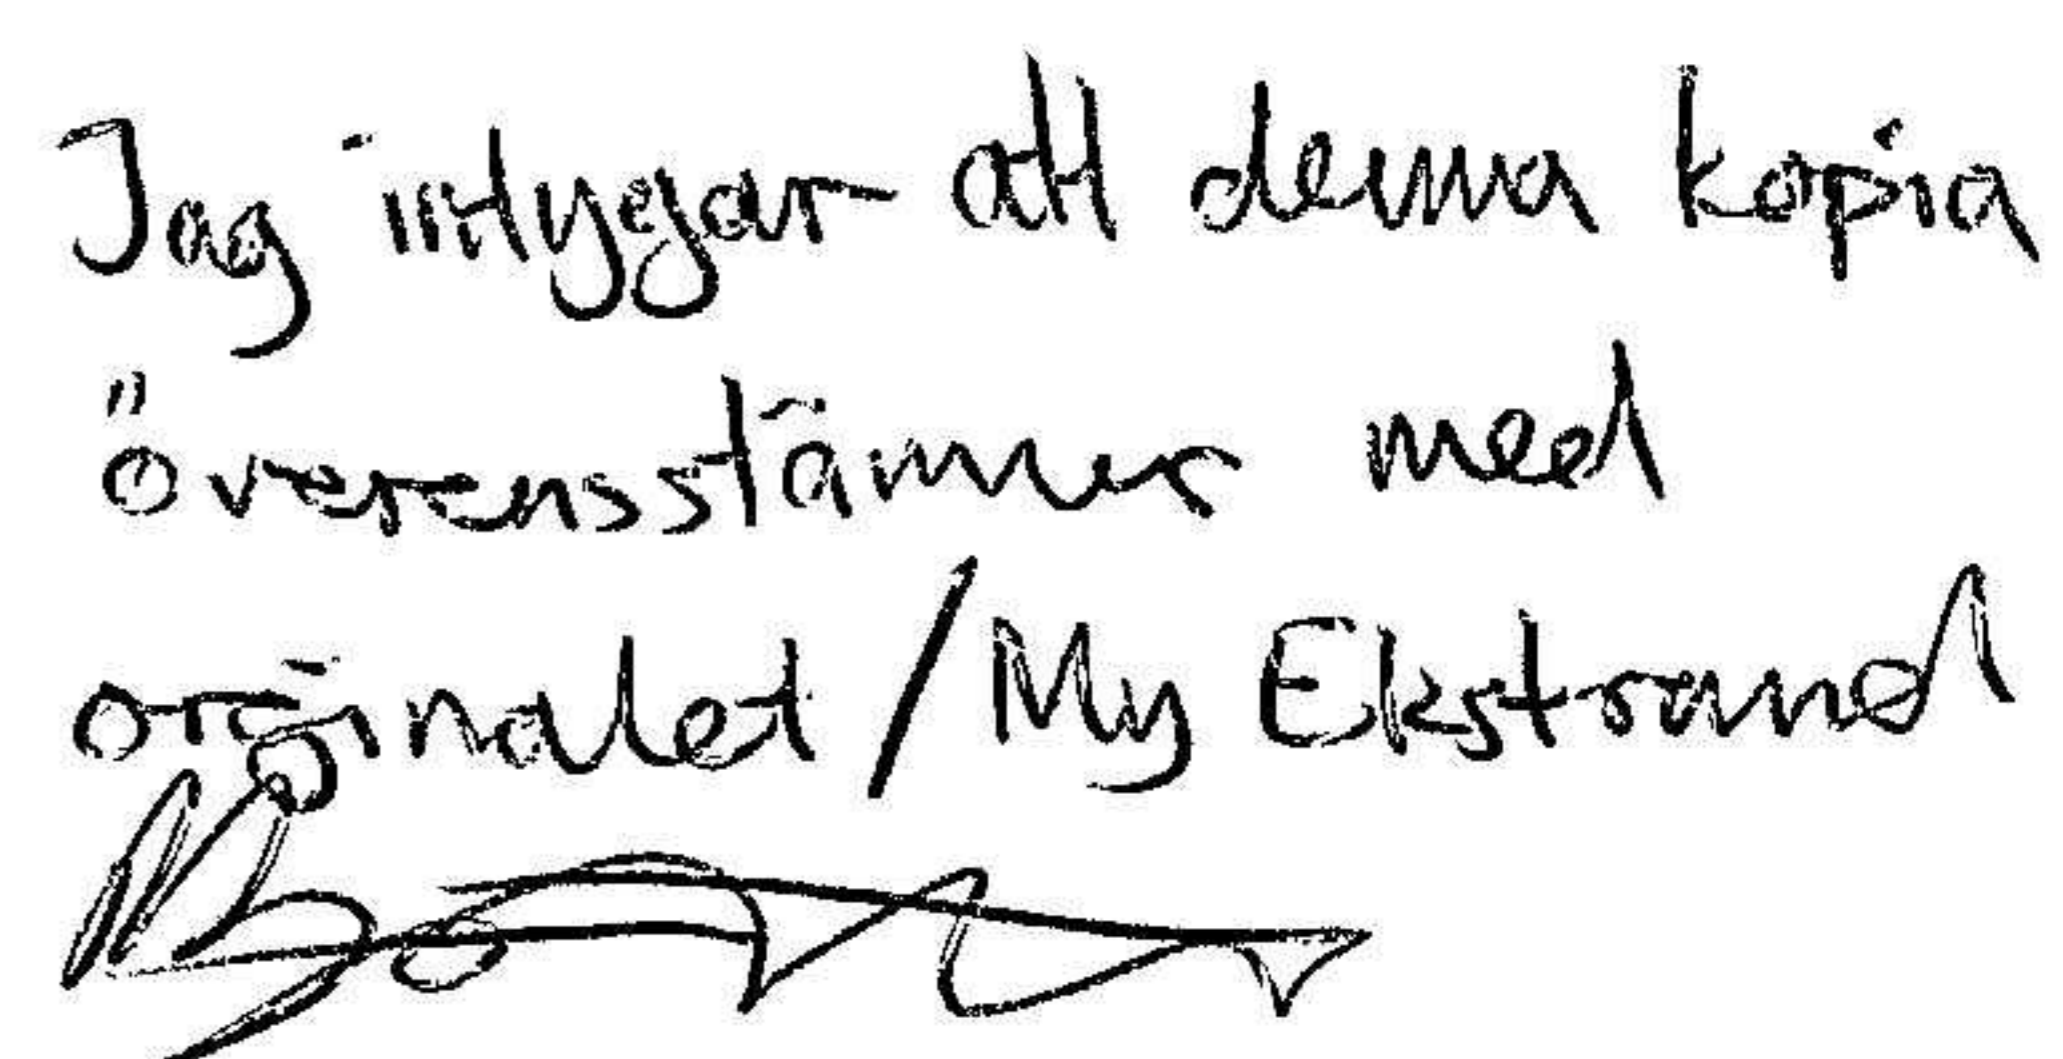 Jag intygar att denna kopia
överensstämmer med
originalet / My Ekstrand